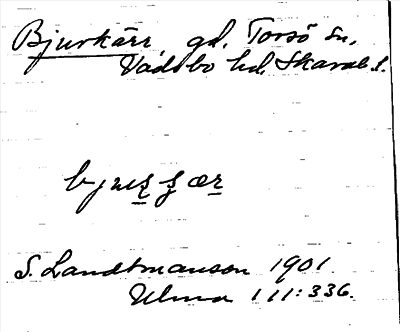 Bjurkärr, gd, Torsö sn,
Vadsbo hd, Skarab. l.
S. Landtmanson 1901.
Ulma 111:336.